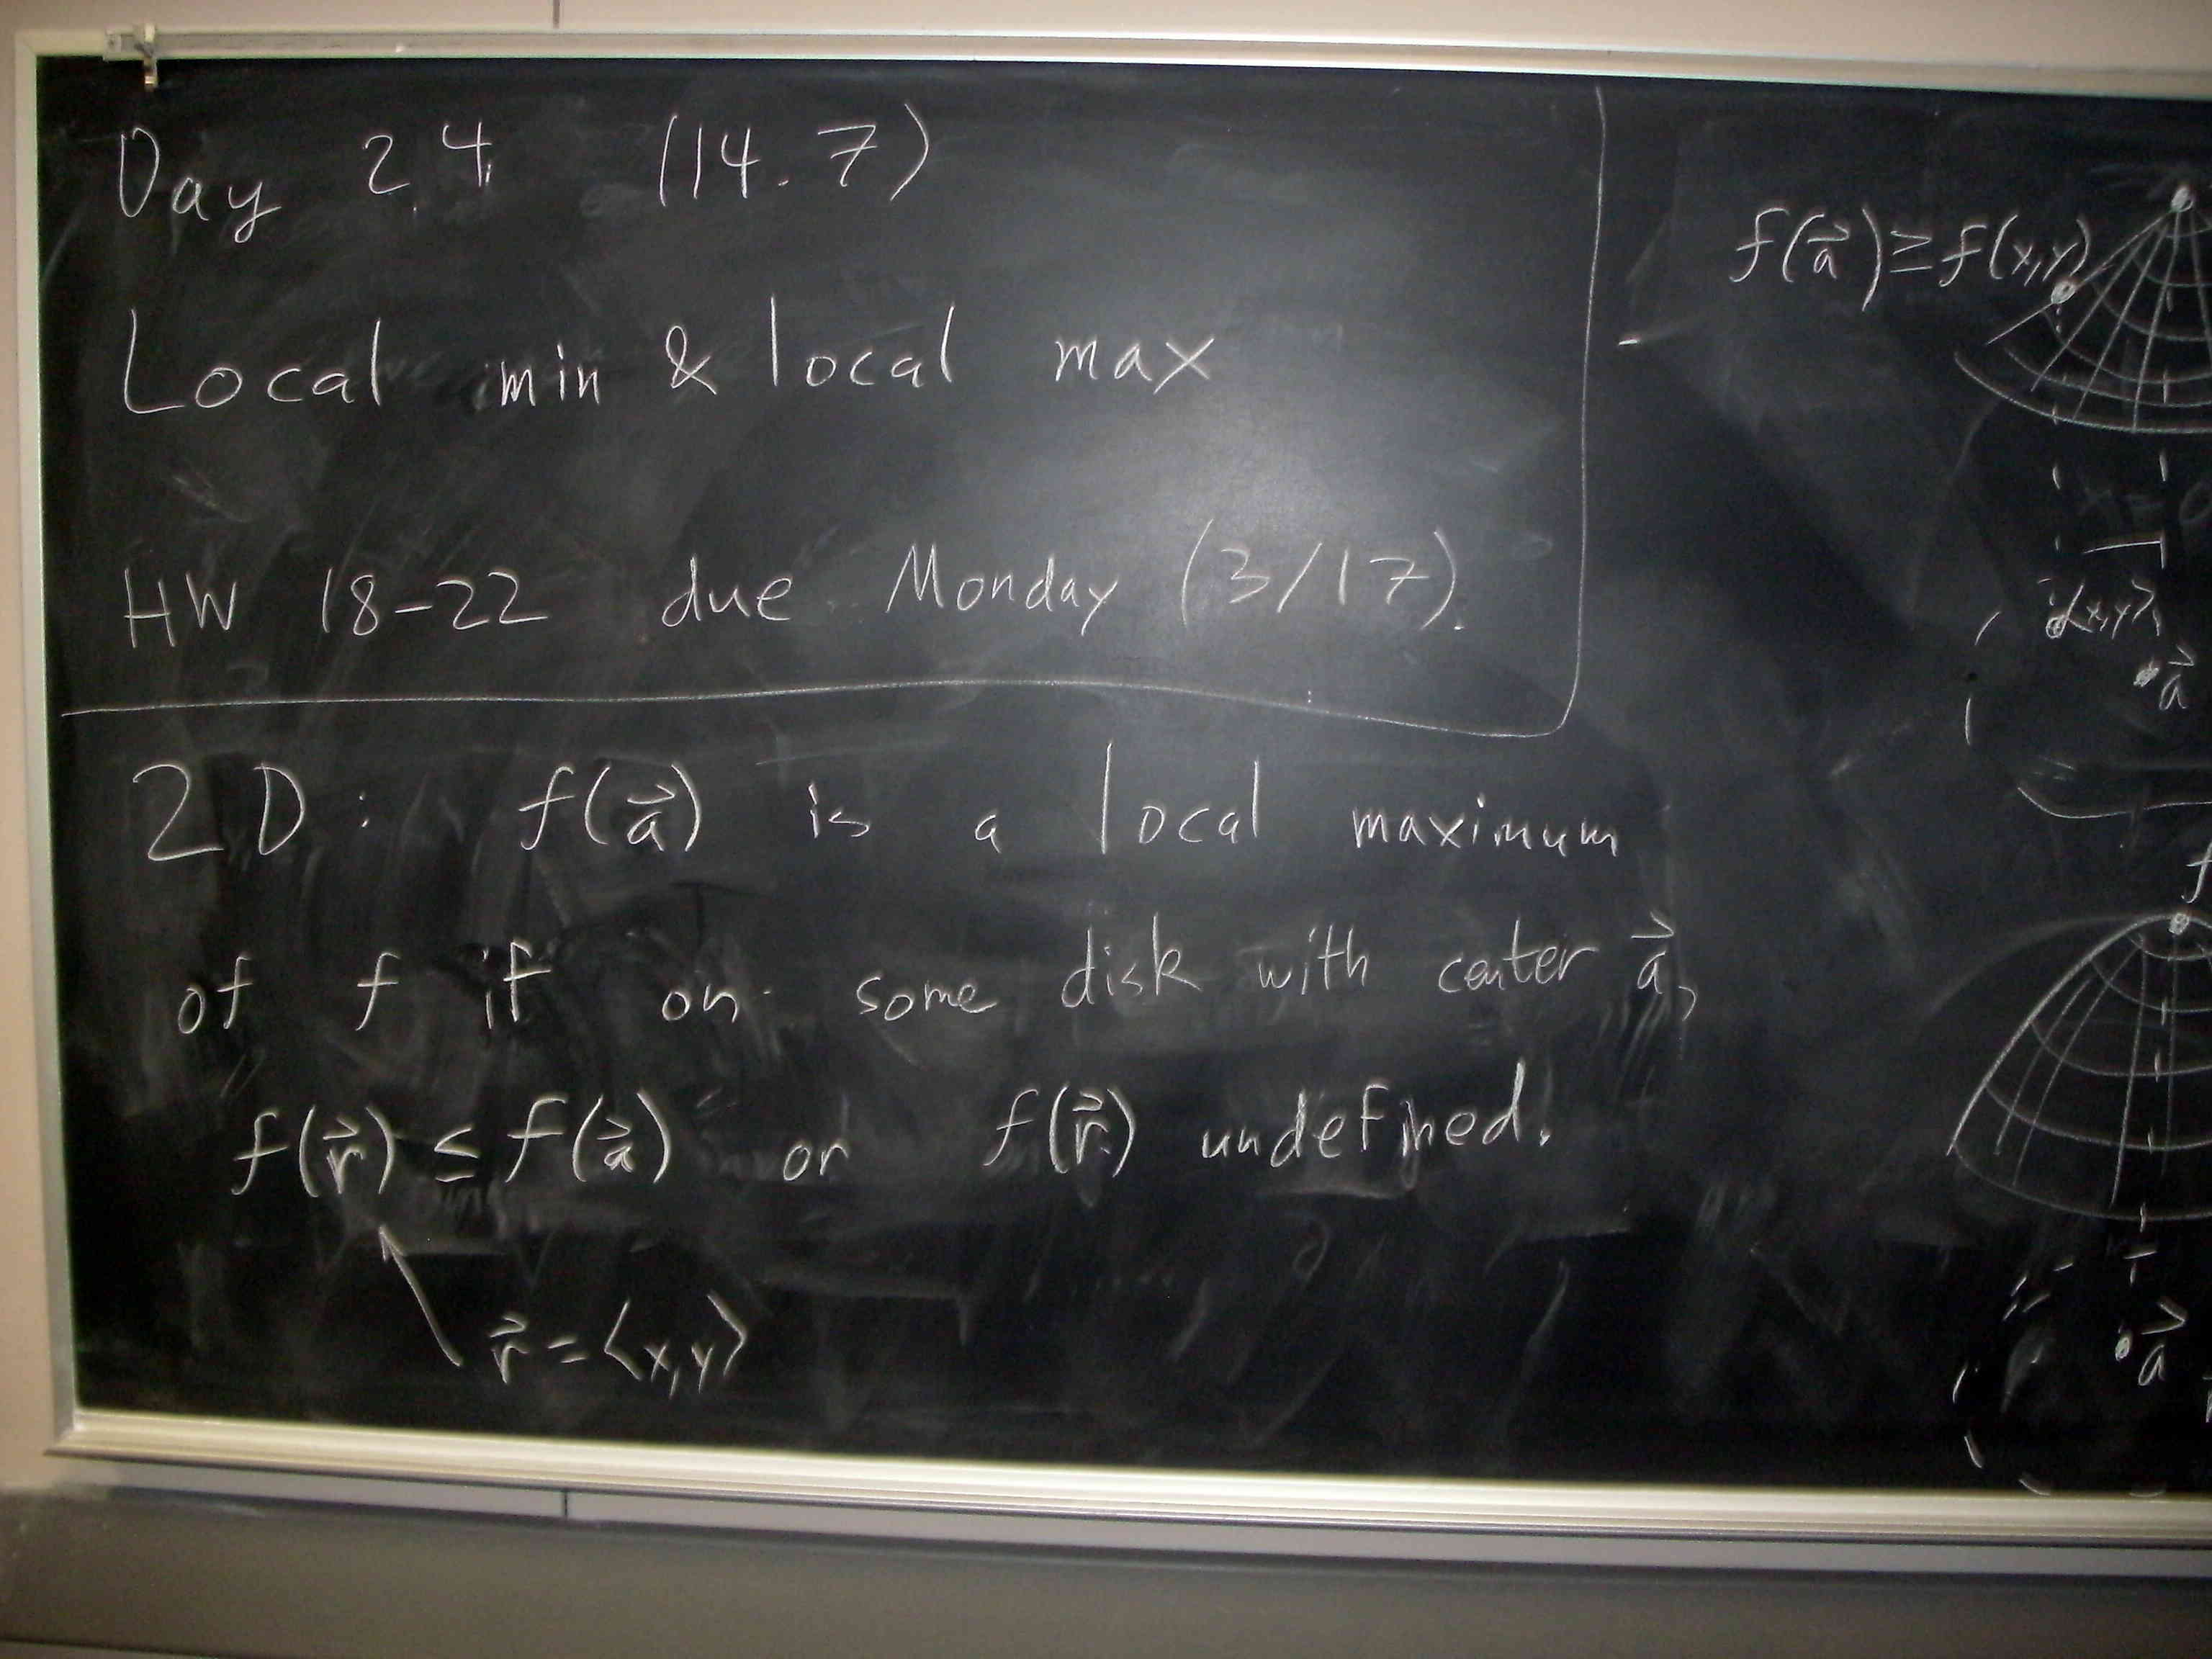 Day 24 (14.7)
Local min & local max
HW 18-22 due Monday (3/17).
2D: f(a⃗) is a local maximum
of f if on some disk with center a⃗,
f(r⃗) ≤ f(a⃗) or f(r⃗) undefined.
r⃗ = ⟨x,y⟩
f(a⃗) ≥ f(x,y)
⟨x,y⟩
a⃗
f
a⃗